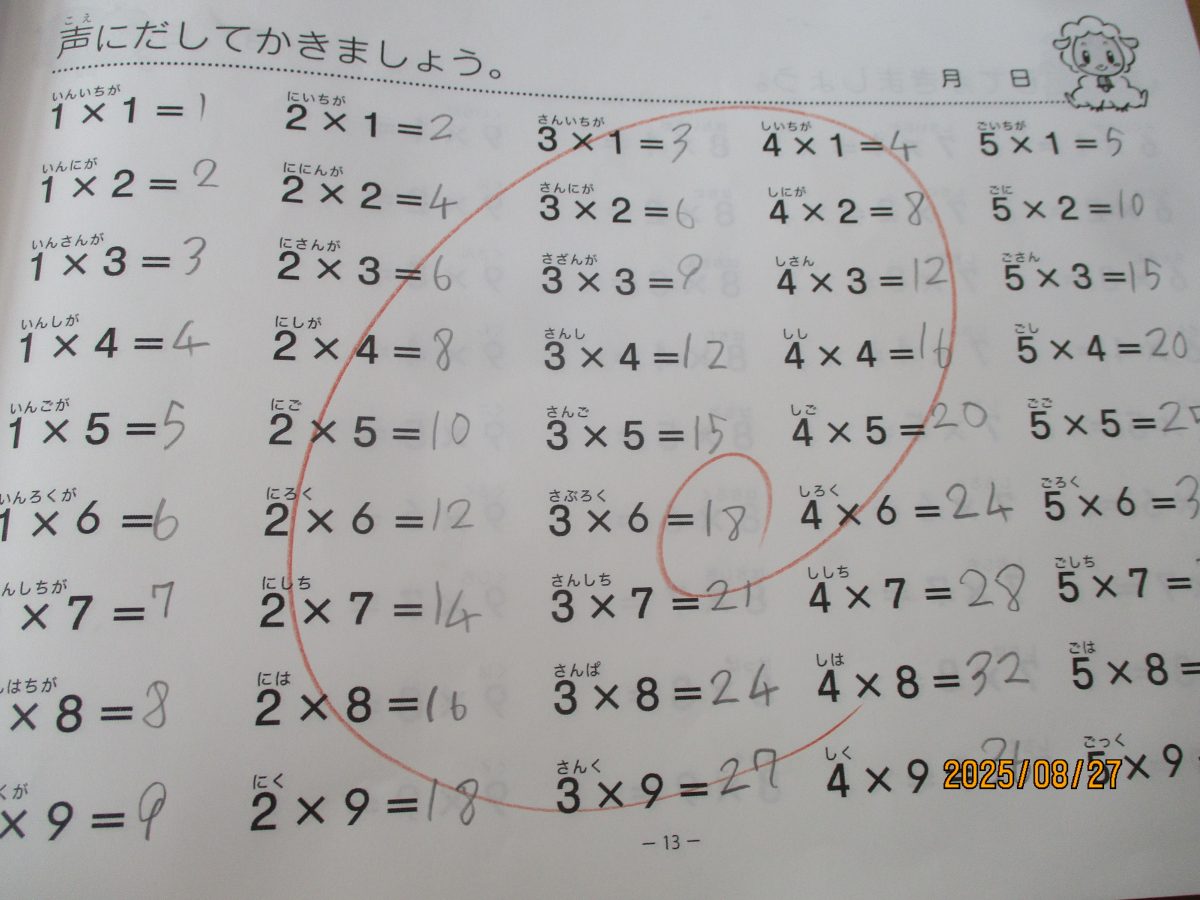 こえ
声にだしてかきましょう。
月 日
いんいちが
1 × 1 = 1
いんにが
1 × 2 = 2
いんさんが
1 × 3 = 3
いんしが
1 × 4 = 4
いんごが
1 × 5 = 5
いんろくが
1 × 6 = 6
んしちが
× 7 = 7
しはちが
× 8 = 8
くが
× 9 = 9
にいちが
2 × 1 = 2
ににんが
2 × 2 = 4
にさんが
2 × 3 = 6
にしが
2 × 4 = 8
にご
2 × 5 = 10
にろく
2 × 6 = 12
にしち
2 × 7 = 14
には
2 × 8 = 16
にく
2 × 9 = 18
さんいちが
3 × 1 = 3
さんにが
3 × 2 = 6
さざんが
3 × 3 = 9
さんし
3 × 4 = 12
さんご
3 × 5 = 15
さぶろく
3 × 6 = 18
さんしち
3 × 7 = 21
さんぱ
3 × 8 = 24
さんく
3 × 9 = 27
しいちが
4 × 1 = 4
しにが
4 × 2 = 8
しさん
4 × 3 = 12
しし
4 × 4 = 16
しご
4 × 5 = 20
しろく
4 × 6 = 24
ししち
4 × 7 = 28
しは
4 × 8 = 32
しく
4 × 9 =
ごいちが
5 × 1 = 5
ごに
5 × 2 = 10
ごさん
5 × 3 = 15
ごし
5 × 4 = 20
ごご
5 × 5 = 25
ごろく
5 × 6 = 3
ごしち
5 × 7 =
ごは
5 × 8 =
ごっく
5 × 9
2025/08/27
− 13 −